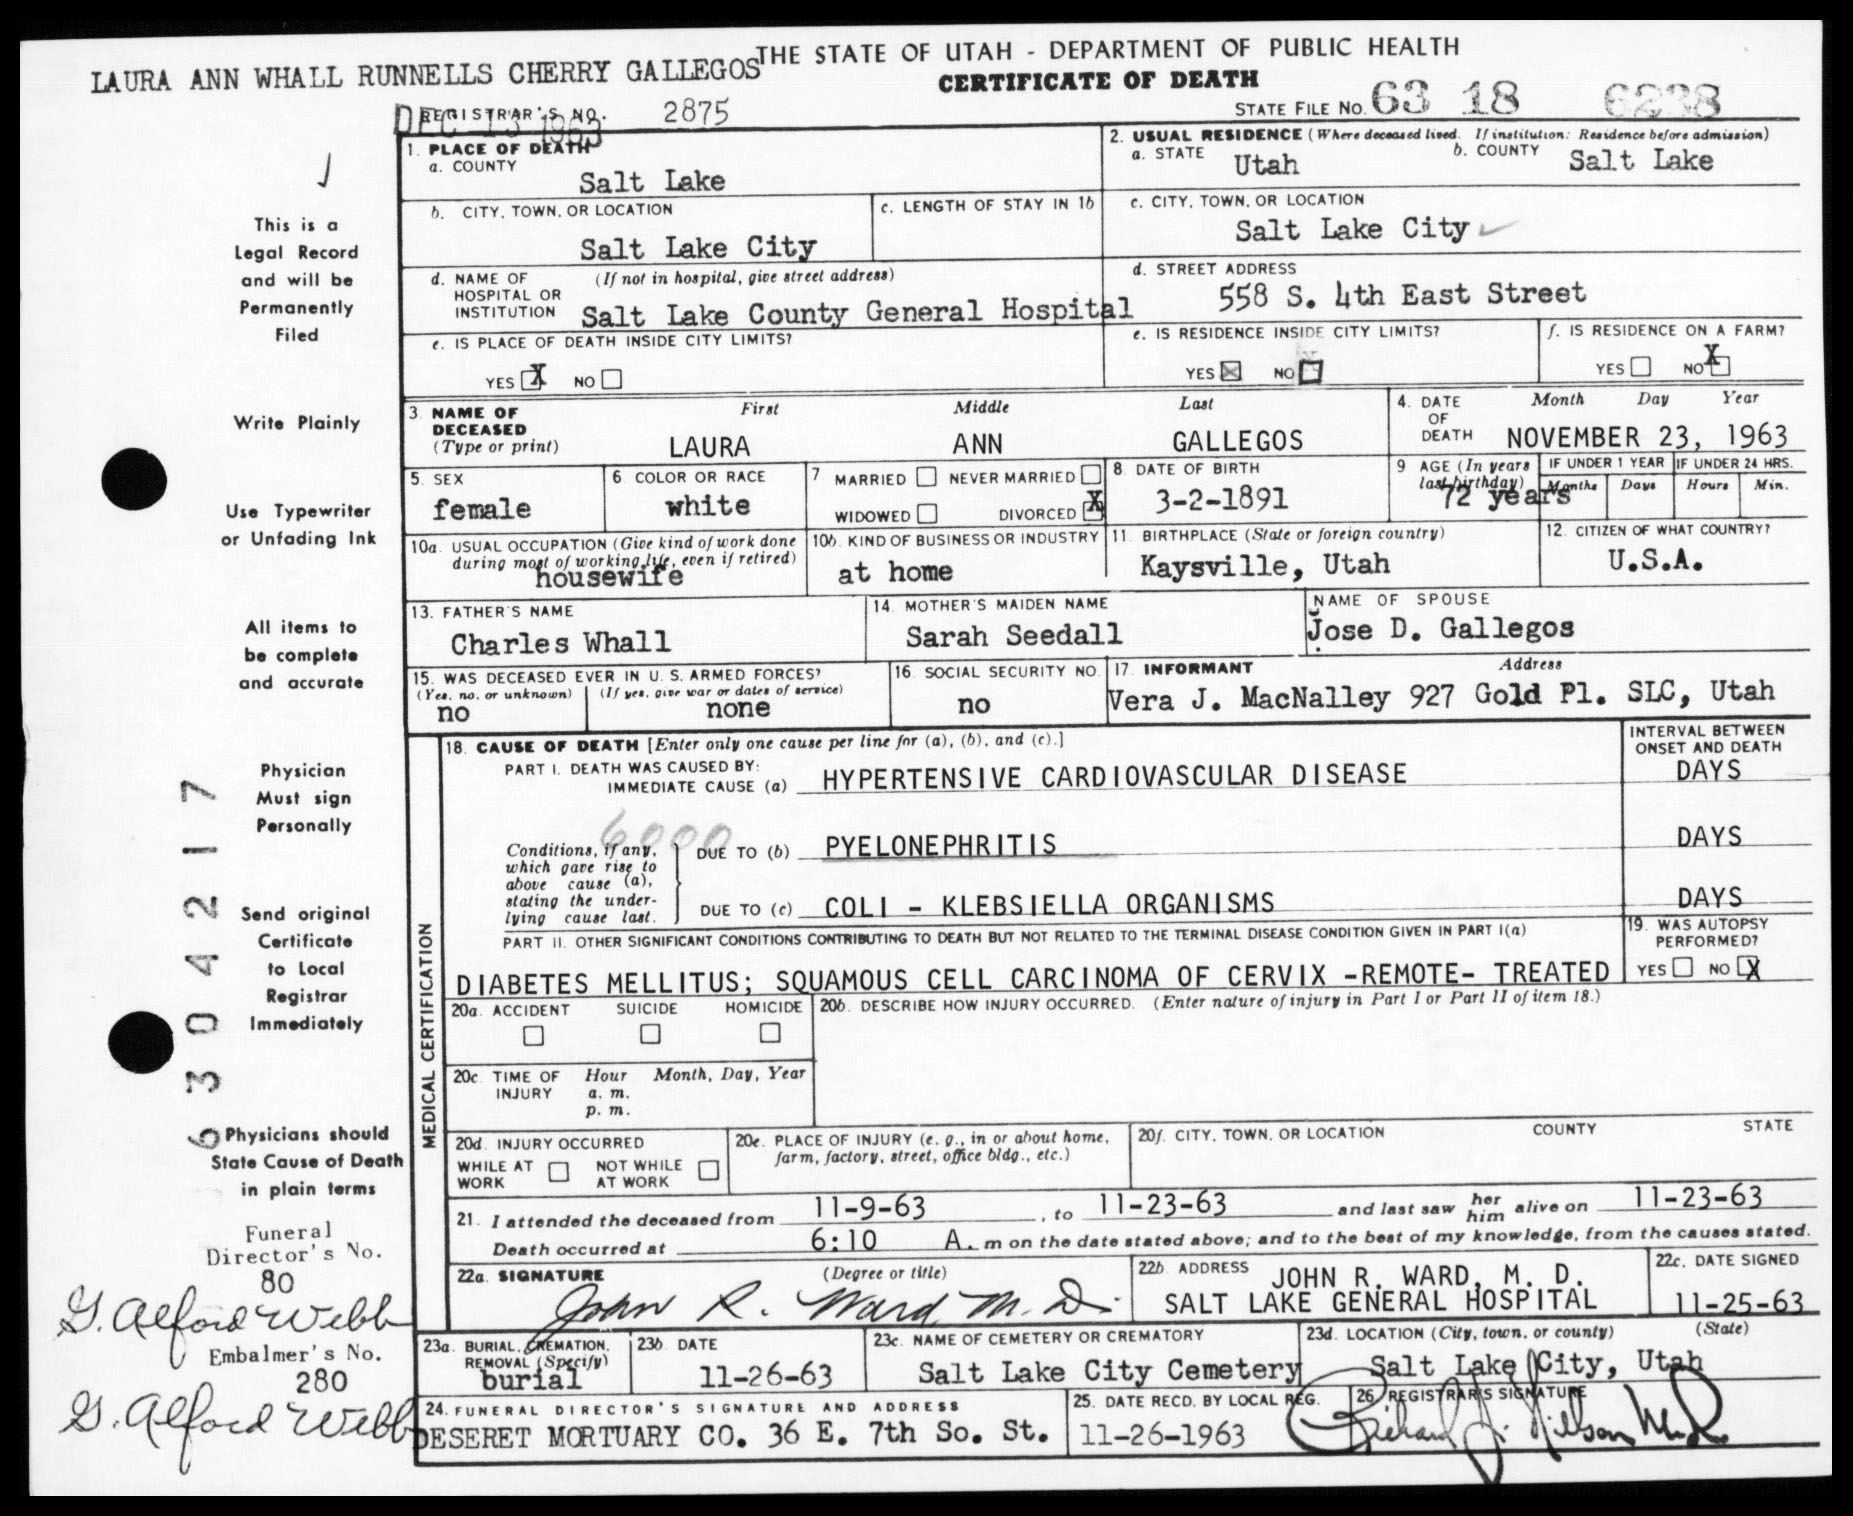 LAURA ANN WHALL RUNNELLS CHERRY GALLEGOS
THE STATE OF UTAH - DEPARTMENT OF PUBLIC HEALTH
CERTIFICATE OF DEATH
STATE FILE NO. 63 18 6238
REGISTRAR'S NO. 2875
DEC 13 1963
1. PLACE OF DEATH
a. COUNTY
Salt Lake
2. USUAL RESIDENCE (Where deceased lived. If institution: Residence before admission)
a. STATE Utah b. COUNTY Salt Lake
b. CITY, TOWN, OR LOCATION
Salt Lake City
c. LENGTH OF STAY IN 1b
c. CITY, TOWN, OR LOCATION
Salt Lake City
d. NAME OF HOSPITAL OR INSTITUTION (If not in hospital, give street address)
Salt Lake County General Hospital
d. STREET ADDRESS
558 S. 4th East Street
e. IS PLACE OF DEATH INSIDE CITY LIMITS?
YES X NO
e. IS RESIDENCE INSIDE CITY LIMITS?
YES X NO
f. IS RESIDENCE ON A FARM?
YES NO X
3. NAME OF DECEASED (Type or print)
First Middle Last
LAURA ANN GALLEGOS
4. DATE OF DEATH Month Day Year
NOVEMBER 23, 1963
5. SEX
female
6 COLOR OR RACE
white
7 MARRIED NEVER MARRIED
WIDOWED DIVORCED X
8. DATE OF BIRTH
3-2-1891
9 AGE (In years last birthday)
72 years
IF UNDER 1 YEAR IF UNDER 24 HRS.
Months Days Hours Min.
10a. USUAL OCCUPATION (Give kind of work done during most of working life, even if retired)
housewife
10b. KIND OF BUSINESS OR INDUSTRY
at home
11. BIRTHPLACE (State or foreign country)
Kaysville, Utah
12. CITIZEN OF WHAT COUNTRY?
U.S.A.
13. FATHER'S NAME
Charles Whall
14. MOTHER'S MAIDEN NAME
Sarah Seedall
NAME OF SPOUSE
Jose D. Gallegos
15. WAS DECEASED EVER IN U. S. ARMED FORCES?
(Yes, no, or unknown) (If yes, give war or dates of service)
no none
16. SOCIAL SECURITY NO.
no
17. INFORMANT Address
Vera J. MacNalley 927 Gold Pl. SLC, Utah
MEDICAL CERTIFICATION
18. CAUSE OF DEATH [Enter only one cause per line for (a), (b), and (c).]
INTERVAL BETWEEN ONSET AND DEATH
PART I. DEATH WAS CAUSED BY:
IMMEDIATE CAUSE (a) HYPERTENSIVE CARDIOVASCULAR DISEASE DAYS
6000
Conditions, if any, which gave rise to above cause (a), stating the underlying cause last.
DUE TO (b) PYELONEPHRITIS DAYS
DUE TO (c) COLI - KLEBSIELLA ORGANISMS DAYS
PART II. OTHER SIGNIFICANT CONDITIONS CONTRIBUTING TO DEATH BUT NOT RELATED TO THE TERMINAL DISEASE CONDITION GIVEN IN PART I(a)
DIABETES MELLITUS; SQUAMOUS CELL CARCINOMA OF CERVIX -REMOTE- TREATED
19. WAS AUTOPSY PERFORMED?
YES NO X
20a. ACCIDENT SUICIDE HOMICIDE
20b. DESCRIBE HOW INJURY OCCURRED. (Enter nature of injury in Part I or Part II of item 18.)
20c. TIME OF INJURY Hour Month, Day, Year
a. m.
p. m.
20d. INJURY OCCURRED
WHILE AT WORK NOT WHILE AT WORK
20e. PLACE OF INJURY (e. g., in or about home, farm, factory, street, office bldg., etc.)
20f. CITY, TOWN, OR LOCATION COUNTY STATE
21. I attended the deceased from 11-9-63, to 11-23-63 and last saw her him alive on 11-23-63
Death occurred at 6:10 A. m on the date stated above; and to the best of my knowledge, from the causes stated.
22a. SIGNATURE (Degree or title)
John R. Ward, M.D.
22b ADDRESS JOHN R. WARD, M. D.
SALT LAKE GENERAL HOSPITAL
22c. DATE SIGNED
11-25-63
23a. BURIAL, CREMATION, REMOVAL (Specify)
burial
23b DATE
11-26-63
23c. NAME OF CEMETERY OR CREMATORY
Salt Lake City Cemetery
23d. LOCATION (City, town, or county) (State)
Salt Lake City, Utah
24. FUNERAL DIRECTOR'S SIGNATURE AND ADDRESS
DESERET MORTUARY CO. 36 E. 7th So. St.
25. DATE RECD. BY LOCAL REG.
11-26-1963
26. REGISTRAR'S SIGNATURE
This is a
Legal Record
and will be
Permanently
Filed
Write Plainly
Use Typewriter
or Unfading Ink
All items to
be complete
and accurate
Physician
Must sign
Personally
Send original
Certificate
to Local
Registrar
Immediately
Physicians should
State Cause of Death
in plain terms
6304217
Funeral
Director's No.
80
G. Alford Webb
Embalmer's No.
280
G. Alford Webb